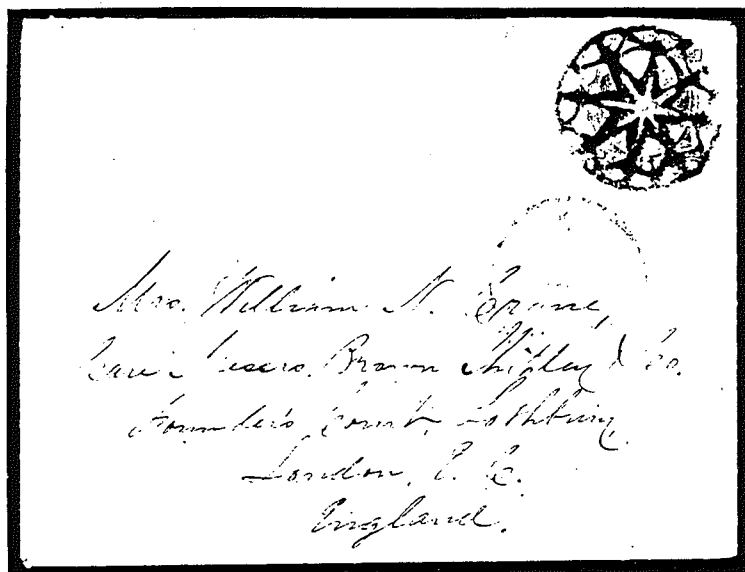 Mrs. William N. Crane,
Care Messrs. Brown Shipley & Co.
Founder's Court, Lothbury,
London, E. C.
England.